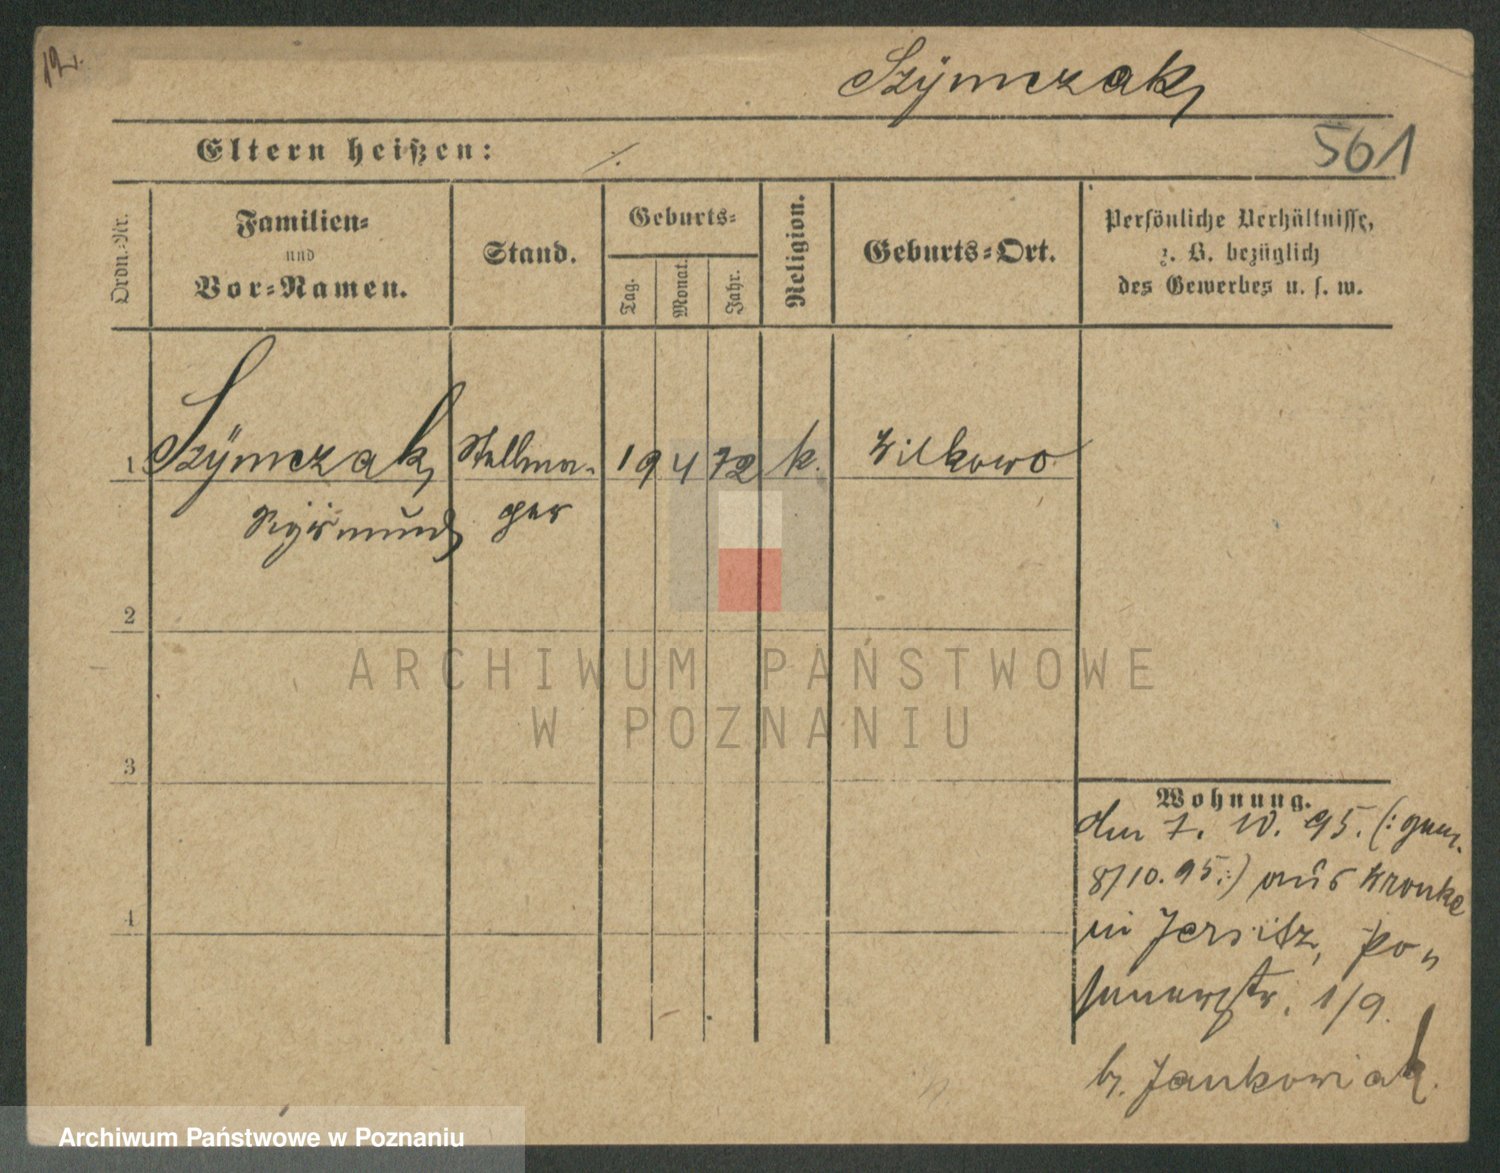 12.
Szÿmczak,
561
Eltern heißen: ⁒
Ordn.-Nr.
Familien-
und
Vor-Namen.
Stand.
Geburts-
Tag.
Monat.
Jahr.
Religion.
Geburts-Ort.
Persönliche Verhältnisse,
z. B. bezüglich
des Gewerbes u. s. w.
1 Szÿmczak, Stellma- 19 4 72 k. Wilkowo
Sigismund ger
2
3
4
Wohnung.
den 7. 10. 95. (: gem.
8/10. 95.:) aus Kronke
in Jersitz, Po-
senerstr. 1/9.
b. Jankowiak.
ARCHIWUM PAŃSTWOWE
W POZNANIU
Archiwum Państwowe w Poznaniu